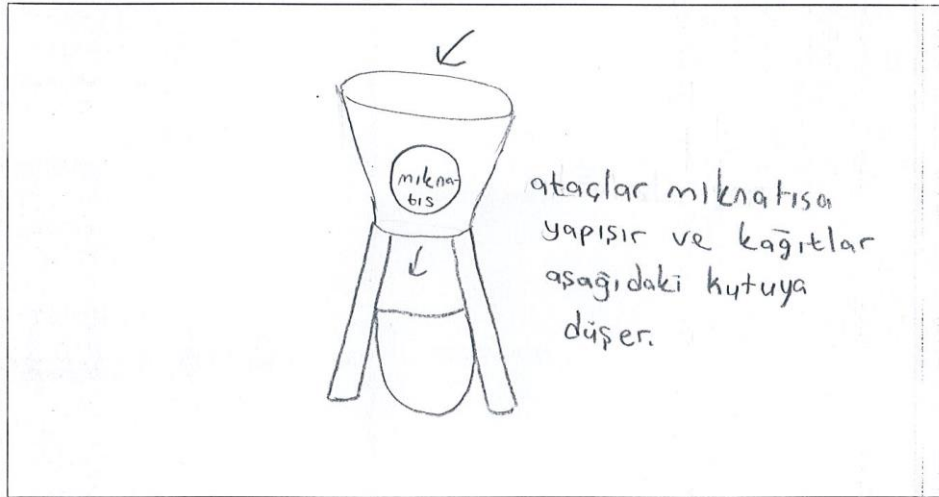 mıkna-
tıs
ataçlar mıknatısa
yapışır ve kağıtlar
aşağıdaki kutuya
düşer.